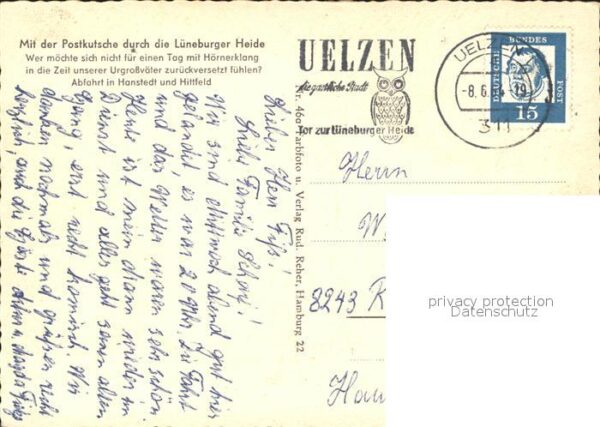 Mit der Postkutsche durch die Lüneburger Heide
Wer möchte sich nicht für einen Tag mit Hörnerklang
in die Zeit unserer Urgroßväter zurückversetzt fühlen?
Abfahrt in Hanstedt und Hittfeld
UELZEN
die gastliche Stadt
Tor zur Lüneburger Heide
UELZEN
-8.6. -19
311
DEUTSCHE BUNDES POST
15
Nr. 160 Farbfoto u. Verlag Rud. Reher, Hamburg 22
Lieber Herr
Liebe Familie
Wir sind Mittwoch abend gut hier
gelandet, es war 20 Uhr. Die Fahrt
und das Wetter waren sehr schön.
Heute ist mein Mann wieder im
Dienst und alles geht seinen alten
Gang, erst recht komisch. Wir
danken nochmals und grüßen recht
herzlich, auch die
Herrn
W
8243 R
Han
privacy protection
Datenschutz